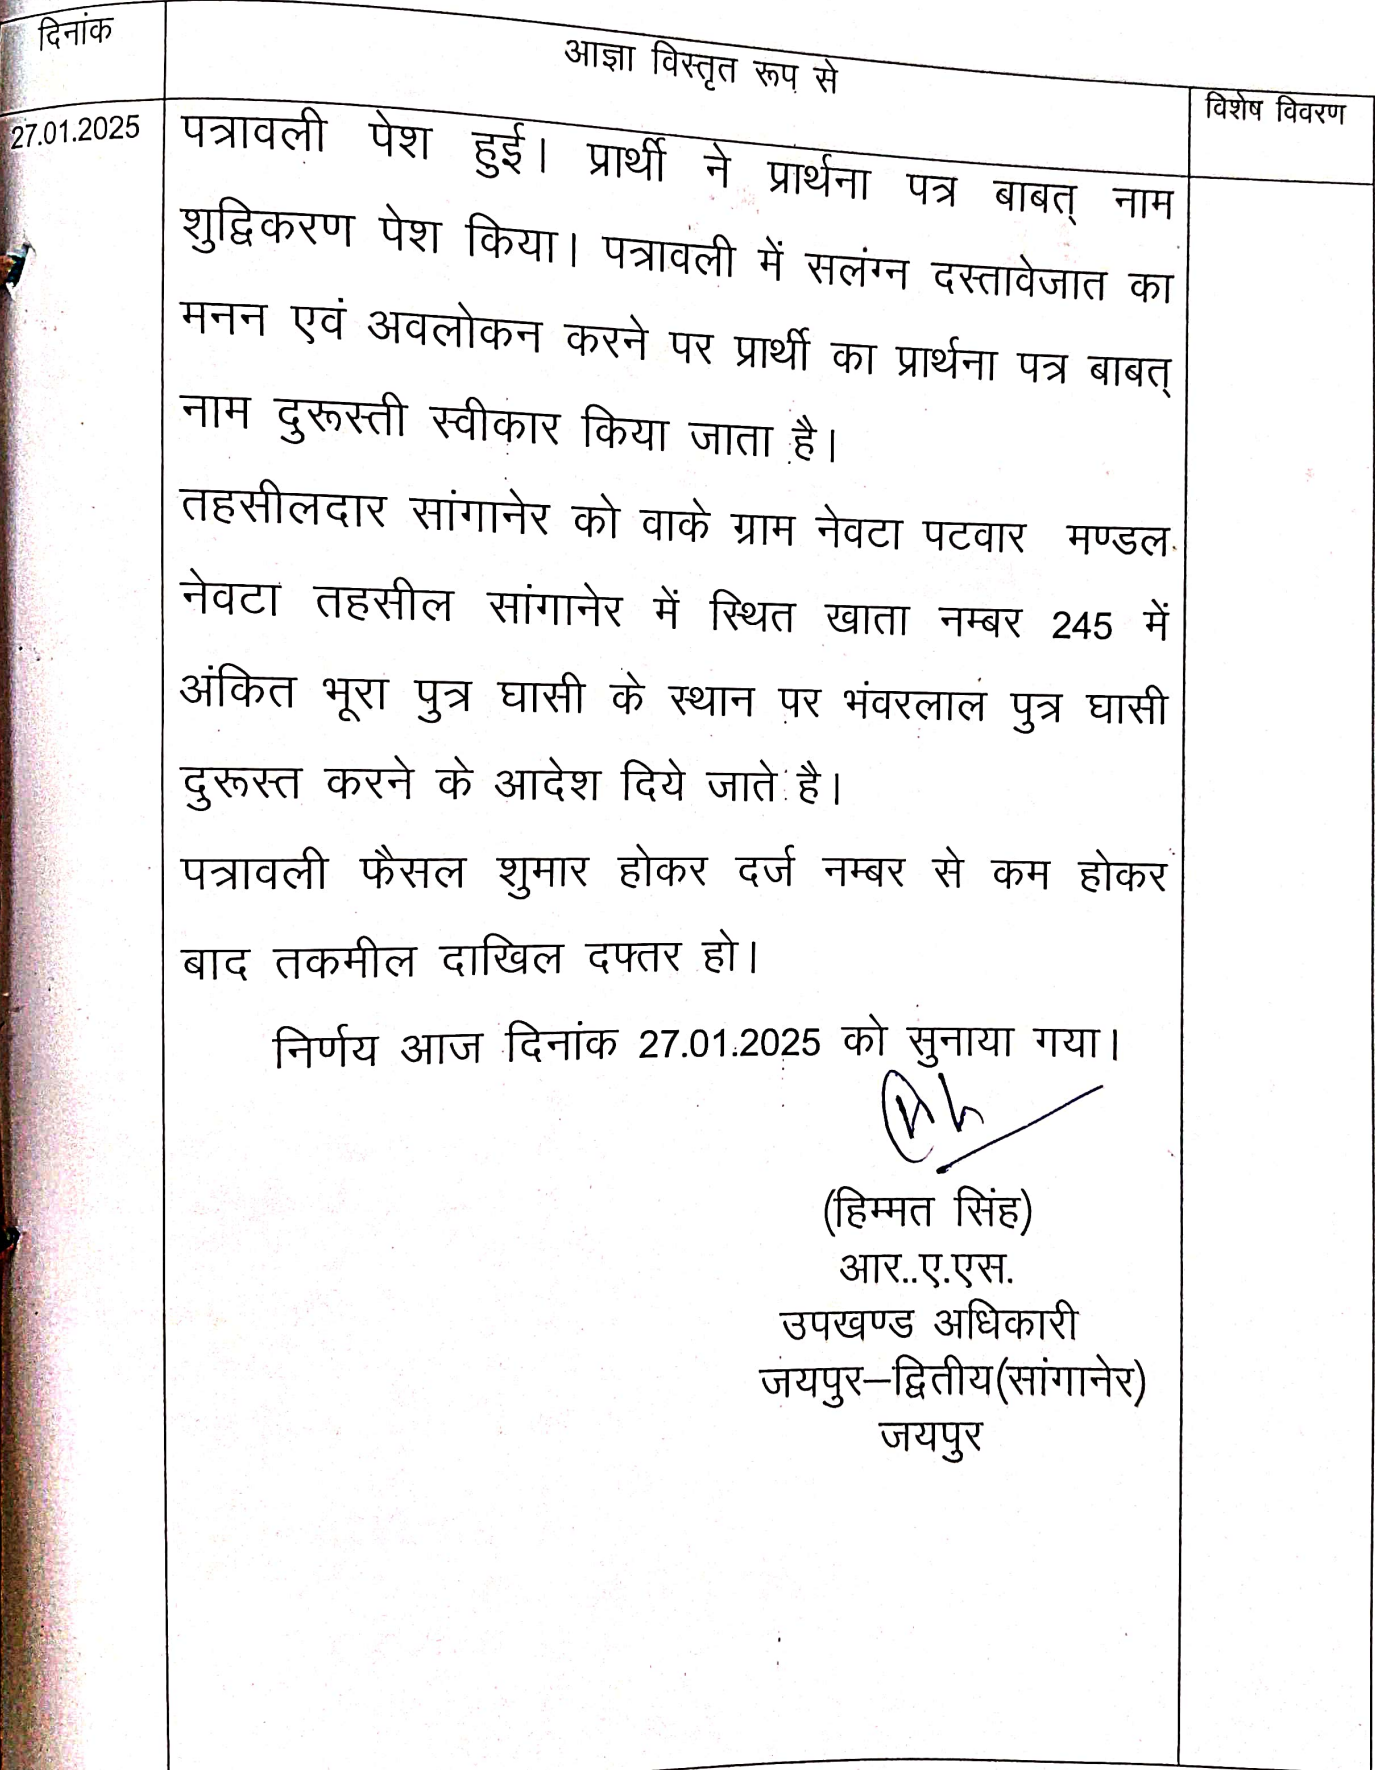 दिनांक
आज्ञा विस्तृत रूप से
विशेष विवरण
27.01.2025
पत्रावली पेश हुई। प्रार्थी ने प्रार्थना पत्र बाबत् नाम
शुद्विकरण पेश किया। पत्रावली में सलंग्न दस्तावेजात का
मनन एवं अवलोकन करने पर प्रार्थी का प्रार्थना पत्र बाबत्
नाम दुरूस्ती स्वीकार किया जाता है।
तहसीलदार सांगानेर को वाके ग्राम नेवटा पटवार मण्डल
नेवटा तहसील सांगानेर में स्थित खाता नम्बर 245 में
अंकित भूरा पुत्र घासी के स्थान पर भंवरलाल पुत्र घासी
दुरूस्त करने के आदेश दिये जाते है।
पत्रावली फैसल शुमार होकर दर्ज नम्बर से कम होकर
बाद तकमील दाखिल दफ्तर हो।
निर्णय आज दिनांक 27.01.2025 को सुनाया गया।
(हिम्मत सिंह)
आर..ए.एस.
उपखण्ड अधिकारी
जयपुर–द्वितीय(सांगानेर)
जयपुर